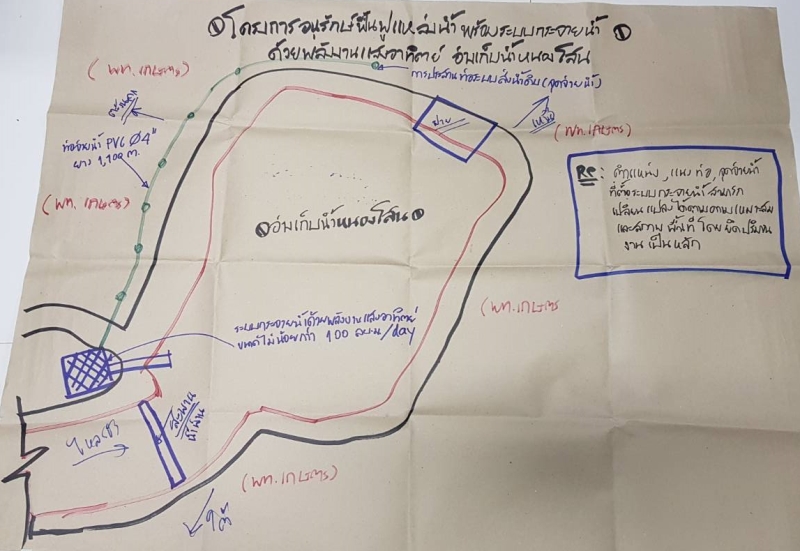 โครงการอนุรักษ์ฟื้นฟูแหล่งน้ำ พร้อมระบบกระจายน้ำ
ด้วยพลังงานแสงอาทิตย์ อ่างเก็บน้ำหนองโสน
(พท.เกษตร)
การประสานท่อระบบส่งน้ำเดิม (จุดจ่ายน้ำ)
ฝาย
เหนือ
(พท.เกษตร)
ท่อจ่ายน้ำ PVC Ø4"
ยาว 1,100 ม.
(พท.เกษตร)
Re: ตำแหน่ง, แนวท่อ, จุดจ่ายน้ำ
ที่ตั้งระบบกระจายน้ำ สามารถ
เปลี่ยนแปลงได้ตามความเหมาะสม
และสภาพพื้นที่ โดยยึดปริมาณ
งานเป็นหลัก
อ่างเก็บน้ำหนองโสน
(พท.เกษตร
ระบบกระจายน้ำด้วยพลังงานแสงอาทิตย์
ขนาดไม่น้อยกว่า 100 ลบ.ม/day
ไหลเข้า
สะพาน
น้ำผ่าน
(พท.เกษตร)
ใต้